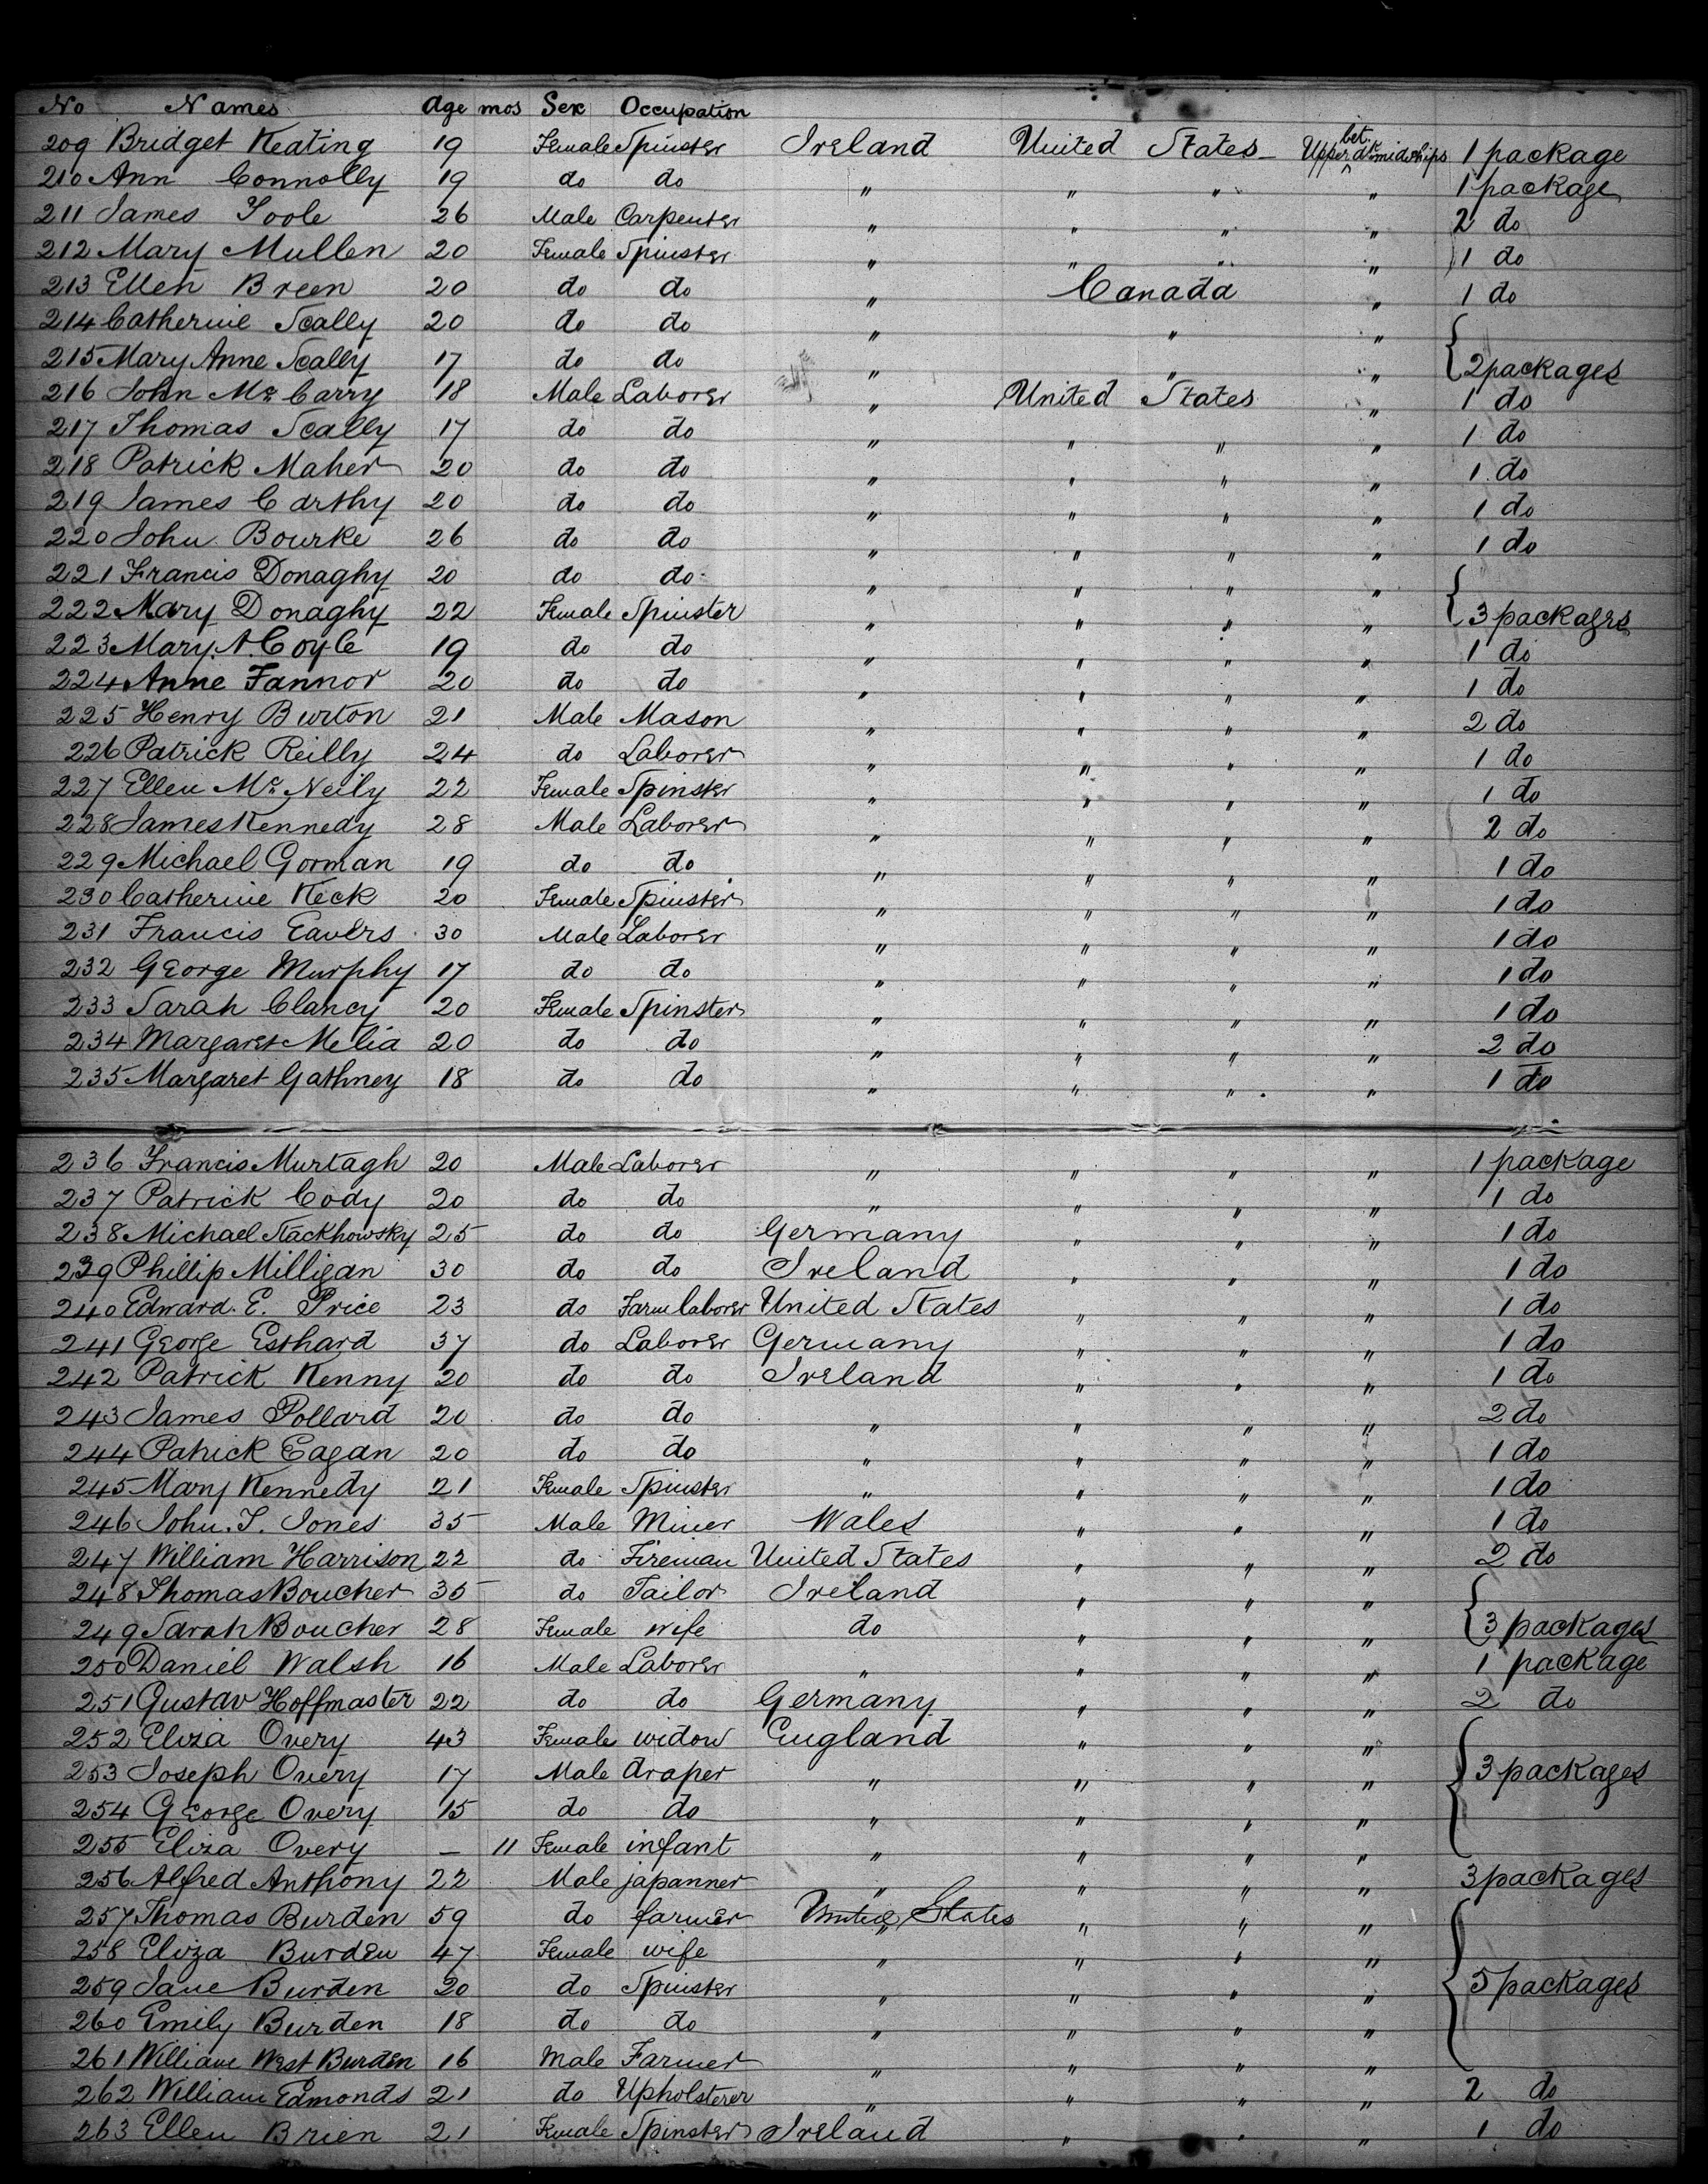 No Names Age mos Sex Occupation
209 Bridget Keating 19 Female Spinster Ireland United States Upper dk bet. midships 1 package
210 Ann Connolly 19 do do " " " " 1 package
211 James Toole 26 Male Carpenter " " " " 2 do
212 Mary Mullen 20 Female Spinster " " " " 1 do
213 Ellen Breen 20 do do " Canada " 1 do
214 Catherine Scally 20 do do " " "
215 Mary Anne Scally 17 do do " " " 2 packages
216 John Mc Carry 18 Male Laborer " United States " 1 do
217 Thomas Scally 17 do do " " " " 1 do
218 Patrick Maher 20 do do " " " " 1 do
219 James Carthy 20 do do " " " " 1 do
220 John Bourke 26 do do " " " " 1 do
221 Francis Donaghy 20 do do " " " "
222 Mary Donaghy 22 Female Spinster " " " " 3 packages
223 Mary A. Coyle 19 do do " " " " 1 do
224 Anne Fannor 20 do do " " " " 1 do
225 Henry Burton 21 Male Mason " " " " 2 do
226 Patrick Reilly 24 do Laborer " " " " 1 do
227 Ellen Mc Neily 22 Female Spinster " " " " 1 do
228 James Kennedy 28 Male Laborer " " " " 2 do
229 Michael Gorman 19 do do " " " " 1 do
230 Catherine Keck 20 Female Spinster " " " " 1 do
231 Francis Eavers 30 Male Laborer " " " " 1 do
232 George Murphy 17 do do " " " " 1 do
233 Sarah Clancy 20 Female Spinster " " " " 1 do
234 Margaret Melia 20 do do " " " " 2 do
235 Margaret Gathney 18 do do " " " " 1 do
236 Francis Murtagh 20 Male Laborer " " " " 1 package
237 Patrick Cody 20 do do " " " " 1 do
238 Michael Stackhowsky 25 do do Germany " " " 1 do
239 Phillip Milligan 30 do do Ireland " " " 1 do
240 Edward. E. Price 23 do Farm laborer United States " " " 1 do
241 George Esthard 37 do Laborer Germany " " " 1 do
242 Patrick Kenny 20 do do Ireland " " " 1 do
243 James Pollard 20 do do " " " " 2 do
244 Patrick Eagan 20 do do " " " " 1 do
245 Mary Kennedy 21 Female Spinster " " " " 1 do
246 John. T. Jones 35 Male Miner Wales " " " 1 do
247 William Harrison 22 do Fireman United States " " " 2 do
248 Thomas Boucher 35 do Tailor Ireland " " "
249 Sarah Boucher 28 Female wife do " " " 3 packages
250 Daniel Walsh 16 Male Laborer " " " " 1 package
251 Gustav Hoffmaster 22 do do Germany " " " 2 do
252 Eliza Overy 43 Female widow England " " "
253 Joseph Overy 17 Male draper " " " " 3 packages
254 George Overy 15 do do " " " "
255 Eliza Overy — 11 Female infant " " " "
256 Alfred Anthony 22 Male japanner " " " " 3 packages
257 Thomas Burden 59 do farmer United States " " " "
258 Eliza Burden 47 Female wife " " " "
259 Jane Burden 20 do Spinster " " " " 5 packages
260 Emily Burden 18 do do " " " "
261 William West Burden 16 Male Farmer " " " "
262 William Edmonds 21 do Upholsterer " " " " 2 do
263 Ellen Brien 21 Female Spinster Ireland " " " 1 do